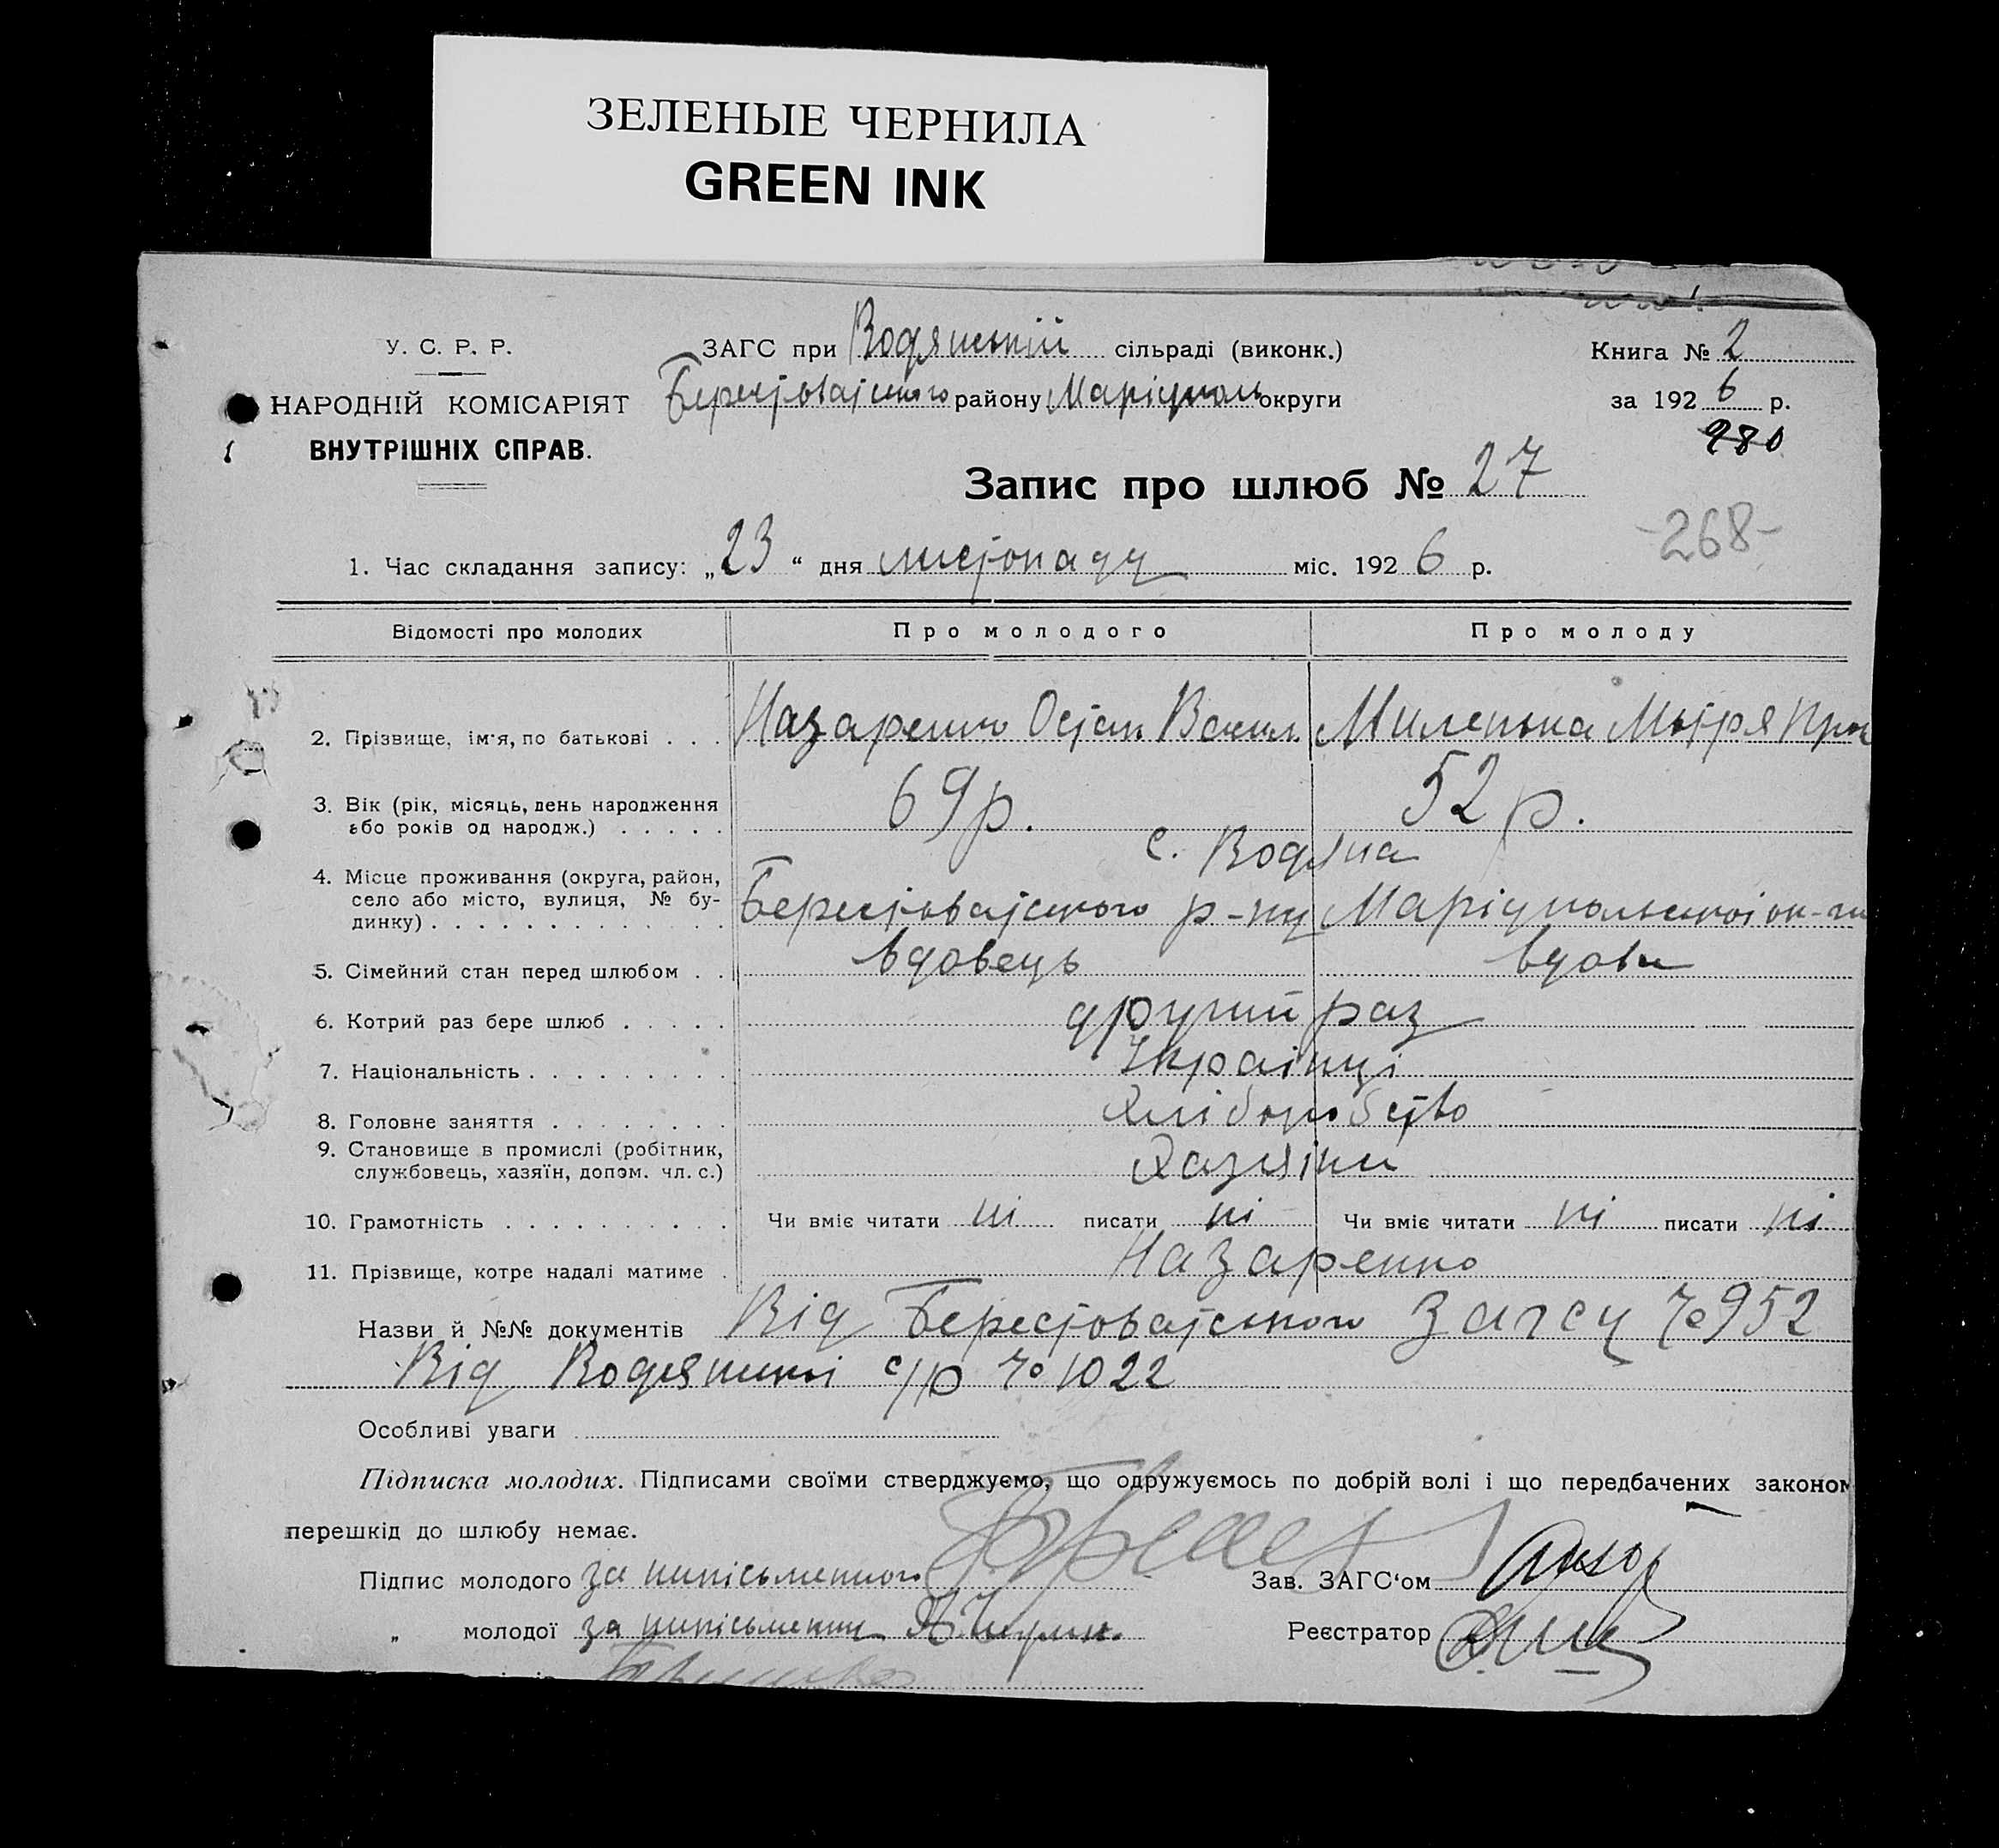 ЗЕЛЕНЫЕ ЧЕРНИЛА
GREEN INK
У. С. Р. Р.
НАРОДНІЙ КОМІСАРІЯТ
ВНУТРІШНІХ СПРАВ.
ЗАГС при Водянській сільраді (виконк.)
Берестоватського району Маріуполь округи
Книга № 2
за 1926 р.
280
Запис про шлюб № 27
-268-
1. Час складання запису: „23“ дня листопаду міс. 1926 р.
Відомості про молодих Про молодого Про молоду
2. Прізвище, ім'я, по батькові . . . Назаренко Остап Васил. Миленька Мотря Прок
3. Вік (рік, місяць, день народження 69 р. 52 р.
або років од народж.) . . . . .
с. Водяна
4. Місце проживання (округа, район,
село або місто, вулиця, № бу- Берестоватського р-ну Маріупольської ок-ги
динку) . . . . . . . . . . . . .
5. Сімейний стан перед шлюбом . . вдовець вдова
6. Котрий раз бере шлюб . . . . . другий раз
7. Національність . . . . . . . . . Українці
8. Головне заняття . . . . . . . . Хліборобство
9. Становище в промислі (робітник, Хазяїни
службовець, хазяїн, допом. чл. с.)
10. Грамотність . . . . . . . . . . Чи вміє читати ні писати ні Чи вміє читати ні писати ні
11. Прізвище, котре надалі матиме . Назаренко
Назви й №№ документів Від Берестоватського Загсу № 952
Від Водянської с/р № 1022
Особливі уваги
Підписка молодих. Підписами своїми стверджуємо, що одружуємось по добрій волі і що передбачених законом
перешкід до шлюбу немає.
Підпис молодого за неписьменного Зав. ЗАГС'ом
„ молодої за неписьменну Реєстратор